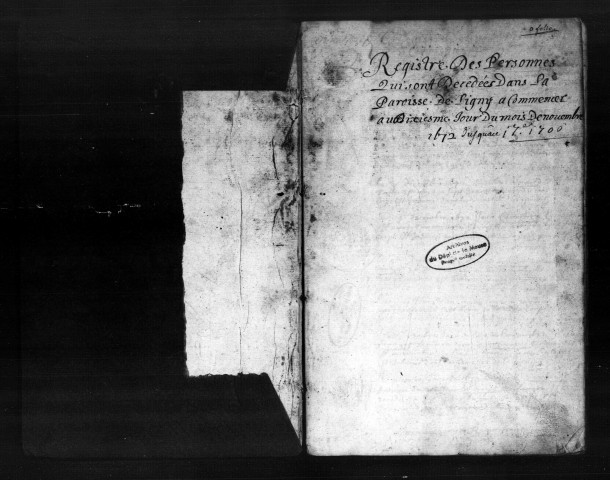 Registre Des Personnes
Qui sont Decedées Dans La
Paroisse de Ligny a Commencer
au Dixiesme Jour Du mois De nouembre
1672 Jusquau 1700
Archives
du Dépt de la Meuse